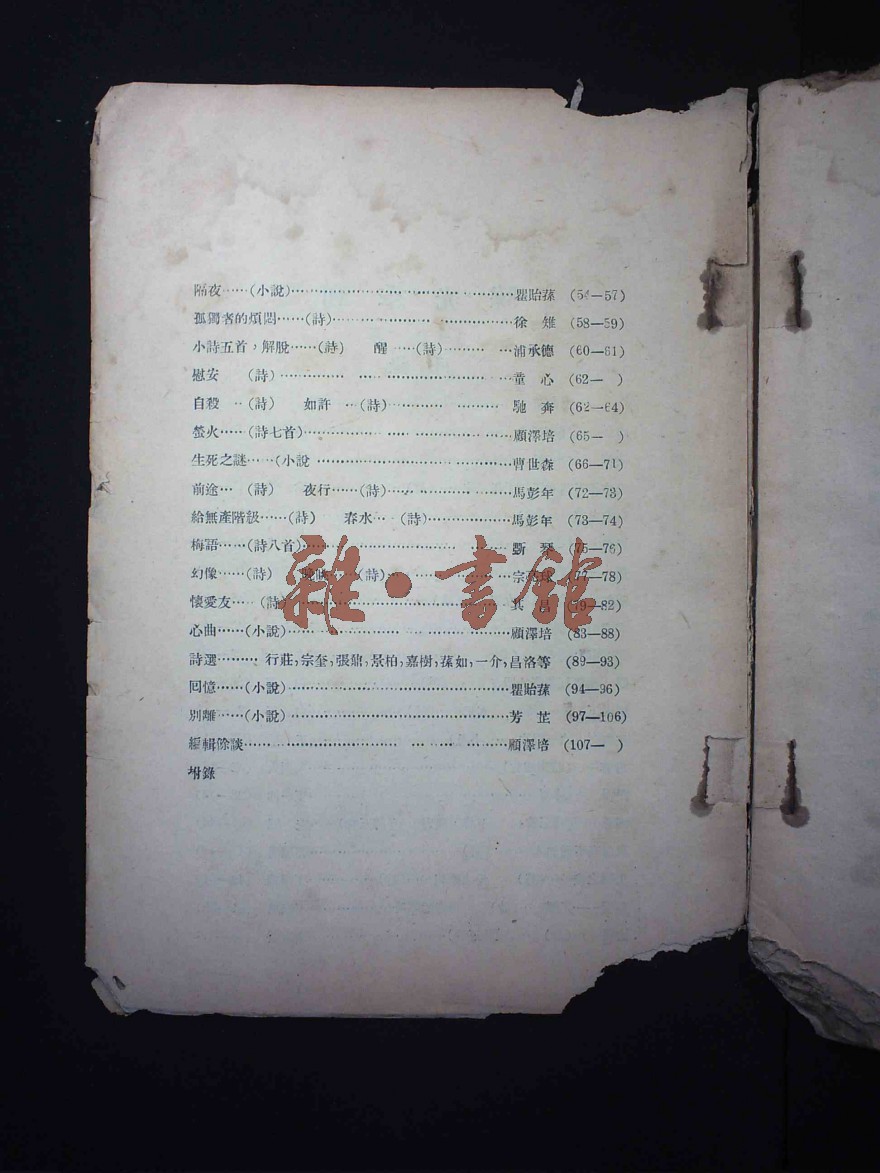 隔夜……(小說)……………………………………瞿貽蓀 (54—57)
孤獨者的煩悶……(詩)……………………………徐 雉 (58—59)
小詩五首，解脫……(詩) 醒……(詩)…………浦承德 (60—61)
慰安 (詩)……………………………………童 心 (62— )
自殺…(詩) 如許…(詩)……………………馳 奔 (62—64)
螢火……(詩七首)……………………………顧澤培 (65— )
生死之謎……(小說……………………………曹世森 (66—71)
前途…(詩) 夜行……(詩)……………………馬彭年 (72—73)
給無產階級……(詩) 春水…(詩)………………馬彭年 (73—74)
梅語……(詩八首)…………………………… (75—76)
幻像……(詩) (詩)……………………宗 (77—78)
懷愛友…(詩)……………………………其 昌 (79—82)
心曲……(小說)……………………………顧澤培 (83—88)
詩選………行莊，宗奎，張鼐，景柏，嘉樹，蓀如，一介，昌洛等 (89—93)
回憶……(小說)……………………………瞿貽蓀 (94—96)
別離……(小說)……………………………芳 芷 (97—106)
編輯餘談……………………………顧澤培 (107— )
坿錄
雜·書館